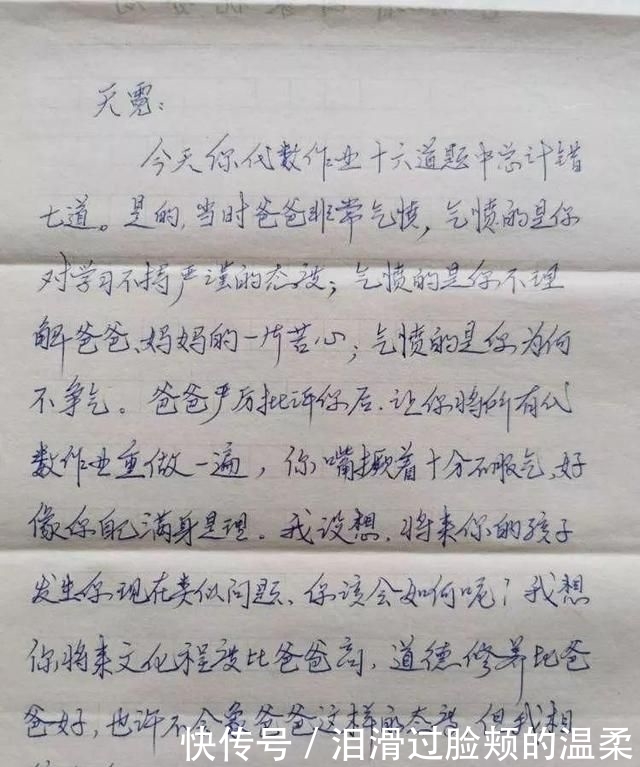 天霓:
今天你代数作业十六道题中总计错
七道。是的,当时爸爸非常气愤,气愤的是你
对学习不持严谨的态度;气愤的是你不理
解爸爸、妈妈的一片苦心;气愤的是你为何
不争气。爸爸严厉批评你后,让你将所有代
数作业重做一遍,你嘴撅着十分不服气,好
像你自己满身是理。我设想,将来你的孩子
发生你现在类似问题、你该会如何呢?我想
你将来文化程度比爸爸高,道德修养比爸
爸好,也许不会象爸爸这样的态度,但我想
快传号/泪滑过脸颊的温柔